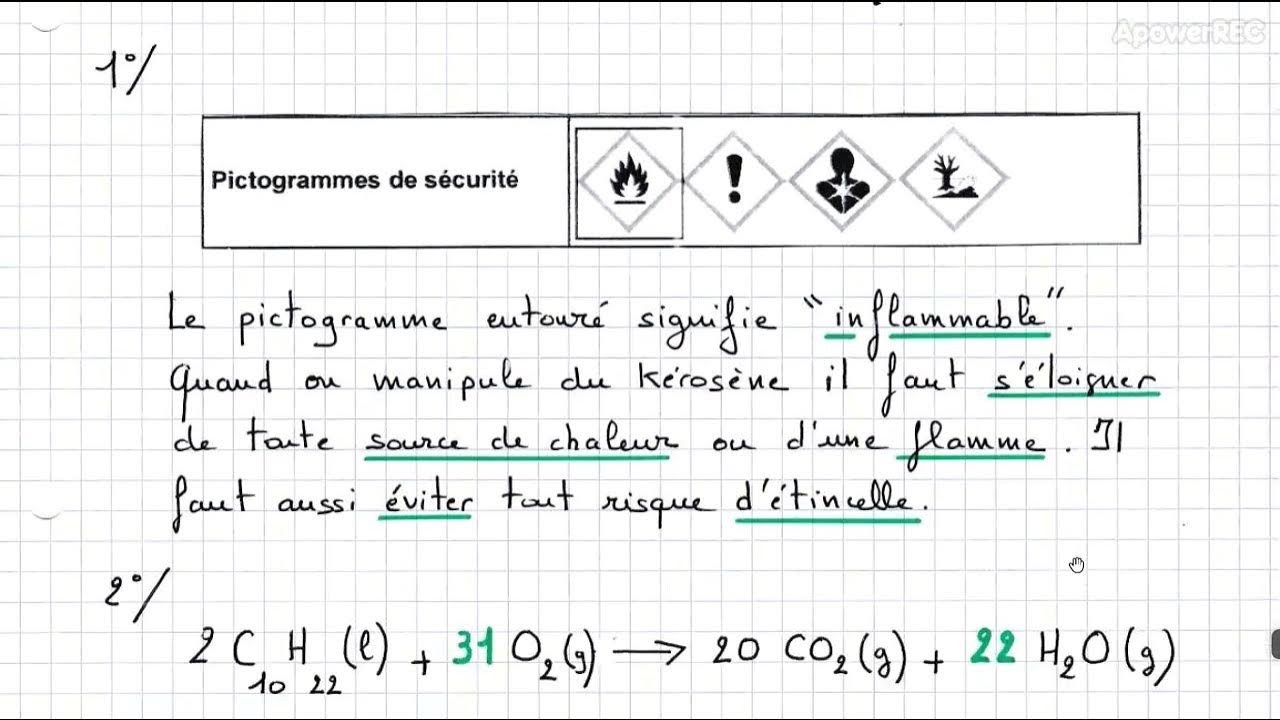 ApowerREC
1°/
Pictogrammes de sécurité
Le pictogramme entouré signifie "inflammable".
Quand on manipule du kérosène il faut s'éloigner
de toute source de chaleur ou d'une flamme. Il
faut aussi éviter tout risque d'étincelle.
2°/
2 C₁₀H₂₂ (l) + 31 O₂(g) → 20 CO₂(g) + 22 H₂O(g)